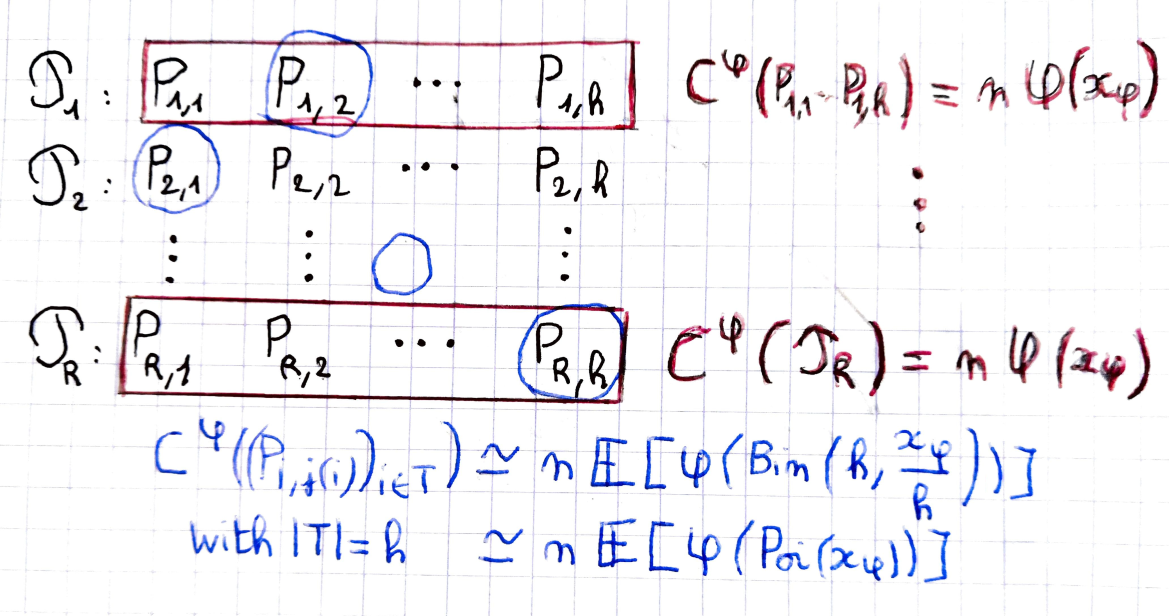 𝒫₁ : P₁,₁ P₁,₂ ... P₁,h C^φ(P₁,₁ - P₁,h) = n φ(x_φ)
𝒫₂ : P₂,₁ P₂,₂ ... P₂,h ⋮
⋮ ⋮ ⋮
𝒫_R : P_R,₁ P_R,₂ ... P_R,h C^φ(𝒫_R) = n φ(x_φ)
C^φ((P_i,j(i))_i∈T) ≃ n 𝔼[φ(Bin(h, x_φ/h))]
with |T| = h ≃ n 𝔼[φ(Poi(x_φ))]